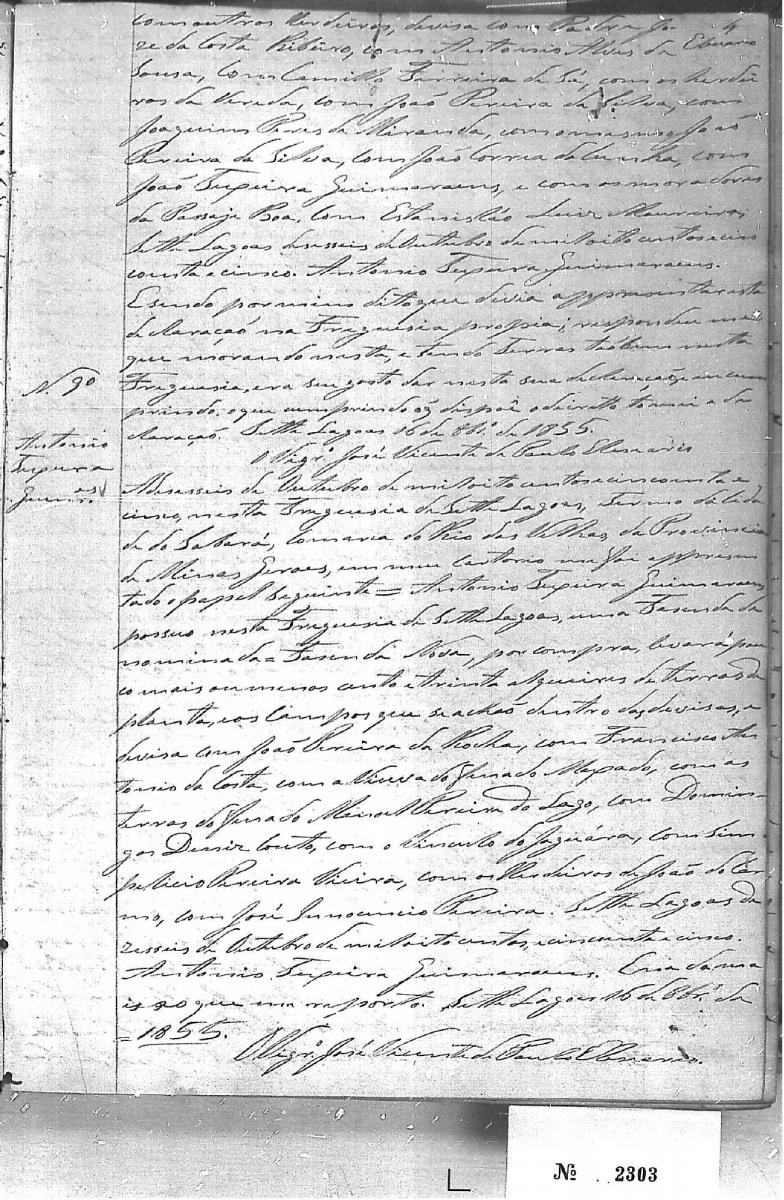 com outros Herdeiros, devisa com Padre Jo- 4
ze da Costa Ribeiro, com Antonio Alves da
Sousa, com Camillo Ferreira de Sá, com os herdei
ros da Vereda, com João Pereira da Silva, com
Joaquim Pires de Miranda, com o mesmo João
Pereira da Silva, com João Correa da Cunha, com
João Teixeira Guimaraens, e com os moradores
da Passaje Boa, com Estanisláo Luiz
Sette Lagoas desasseis de Outubro de mil oito centos e cin
coenta e cinco. Antonio Teixeira Guimaraens.
E sendo por mim dito que devia appresentar esta
declaração na Freguesia propria; respondeu me
que morando nesta, e tendo terras tãobem nesta
N. 90 Freguesia, era seu gosto dar nesta sua declaração, e
prindo o que dispoe o direito tomei a de
claração. Sette Lagoas 16 de 8br.º de 1855.
O Vigr.º José Vicente de Paulo Elisiario
Antonio
Teixeira
Guim.es
A desasseis de Outubro de mil oito centos e cincoenta e
cinco, nesta Freguesia de Sette Lagoas, Termo da Cida
de do Sabará, Comarca do Rio das Velhas, da Provincia
de Minas Geraes, em meu cartorio me foi appresen
tado o papel seguinte = Antonio Teixeira Guimaraens,
possue nesta Freguesia de Sette Lagoas, uma Fasenda de
nominada = Fasenda Nova, por compra, levará pou
co mais ou menos cento e trinta alqueires de terras de
planta, e os Campos que se achão dentro das devisas, e
devisa com João Pereira da Rocha, com Francisco An
tonio da Costa, com a Viuva do finado Maxado, com as
terras do finado Manoel Pereira do Lago, com Domin-
gos Diniz Couto, com o Vinculo do Jaguára, com Sim
plicio Pereira Vieira, com os Herdeiros de João do Car
mo, com José Innocencio Pereira. Sette Lagoas de
zesseis de Outubro de mil oito centos, e cincoenta e cinco.
Antonio Teixeira Guimaraens. E nada mais
ao que me reporto. Sette Lagoas 16 de 8br.º de
= 1855.
O Vigr.º José Vicente de Paulo Elisiario.
Nº 2303